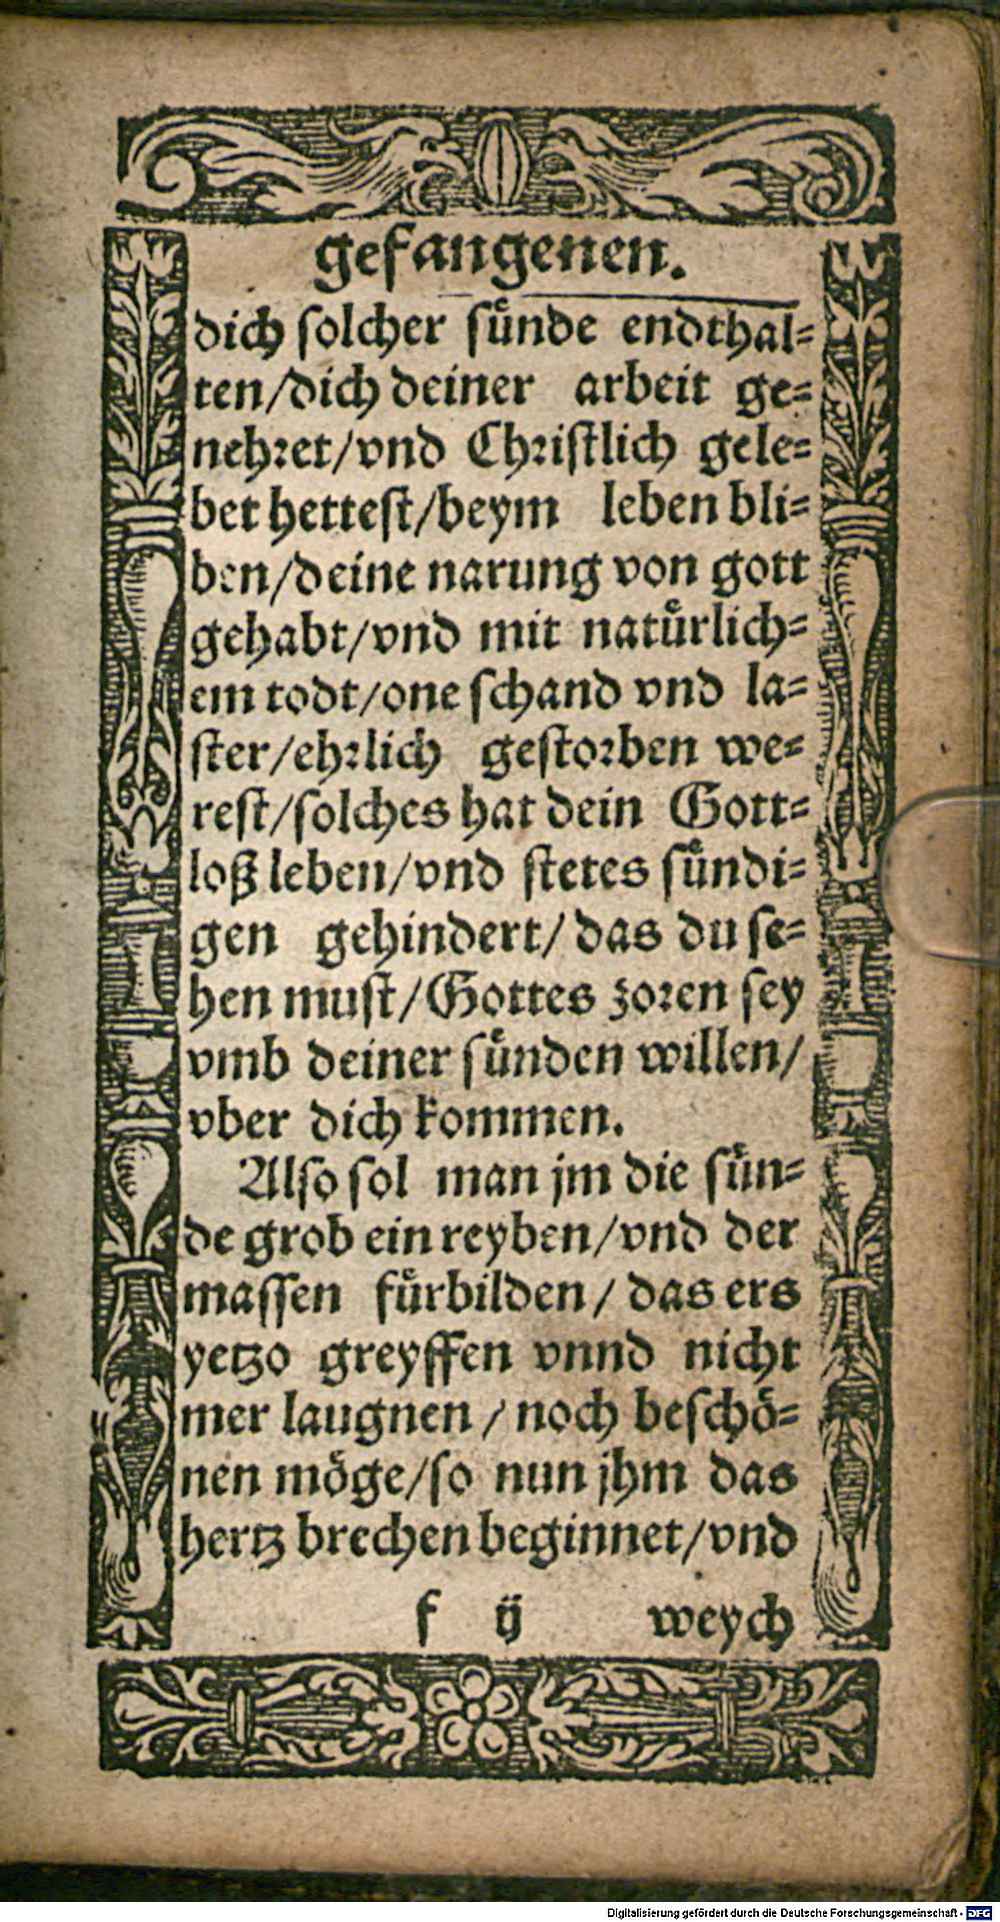 gefangenen.
dich solcher sünde endthal=
ten/dich deiner arbeit ge=
nehret/vnd Christlich gele=
bet hettest/beym leben bli=
ben/deine narung von gott
gehabt/vnd mit natürlich=
em todt/one schand vnd la=
ster/ehrlich gestorben we=
rest/solches hat dein Gott=
loß leben/vnd stetes sündi=
gen gehindert/das du se=
hen must/Gottes zoren sey
vmb deiner sünden willen/
vber dich kommen.
Also sol man jm die sün=
de grob ein reyben/vnd der
massen fürbilden/das ers
yetzo greyffen vnnd nicht
mer laugnen/noch beschö=
nen möge/so nun jhm das
hertz brechen beginnet/vnd
f ij weych
Digitalisierung gefördert durch die Deutsche Forschungsgemeinschaft - DFG